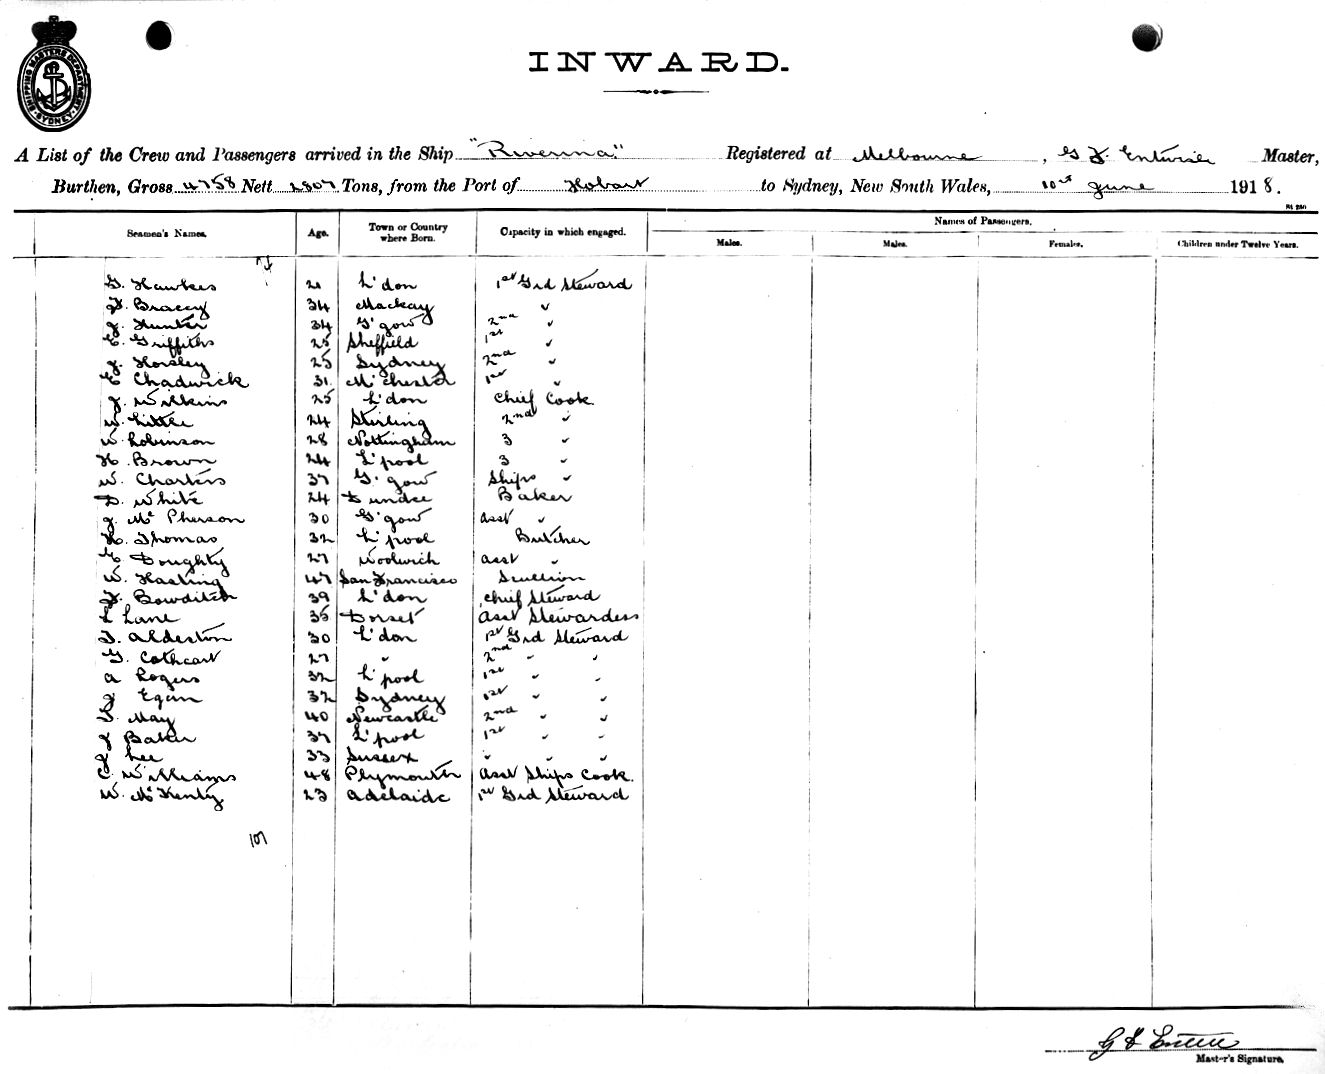 SHIPPING MASTERS DEPARTMENT SYDNEY
INWARD.
A List of the Crew and Passengers arrived in the Ship "Riverina." Registered at Melbourne, Master,
Burthen, Gross 4758 Nett 2807 Tons, from the Port of Hobart to Sydney, New South Wales, 10th June 1918.
Names of Passengers.
Seamen's Names. Age. Town or Country where Born. Capacity in which engaged. Males. Males. Females. Children under Twelve Years.
G. Hawkes 21 L'don 1st Grd Steward
F. Bracey 34 Mackay "
J. Hunter 34 G'gow 2nd "
E. Griffiths 25 Sheffield 1st "
J. Horsley 25 Sydney 2nd "
E Chadwick 31 M'chester 1st "
J. Wilkins 25 L'don Chief Cook
W. Little 24 Stirling 2nd "
W. Robinson 28 Nottingham 3 "
H. Brown 24 L'pool 3 "
W. Charters 37 G'gow Ships "
D. White 24 Dundee Baker
J. Mc Pherson 30 G'gow Asst "
H. Thomas 32 L'pool Butcher
E Doughty 27 Woolwich Asst "
W. Hasting 47 San Francisco Scullion
F. Bowditch 39 L'don Chief Steward
L Lane 35 Dorset Asst Stewardess
T. Alderton 30 L'don 1st Grd Steward
G. Cathcart 27 " 2nd " "
A Rogers 32 L'pool 1st " "
J Egan 32 Sydney 1st " "
T. May 40 Newcastle 2nd " "
J Baker 37 L'pool 1st " "
J Lee 33 Sussex " " "
C. Williams 48 Plymouth Asst Ships Cook.
W. McKenty 23 Adelaide 1st Grd Steward
107
Master's Signature.